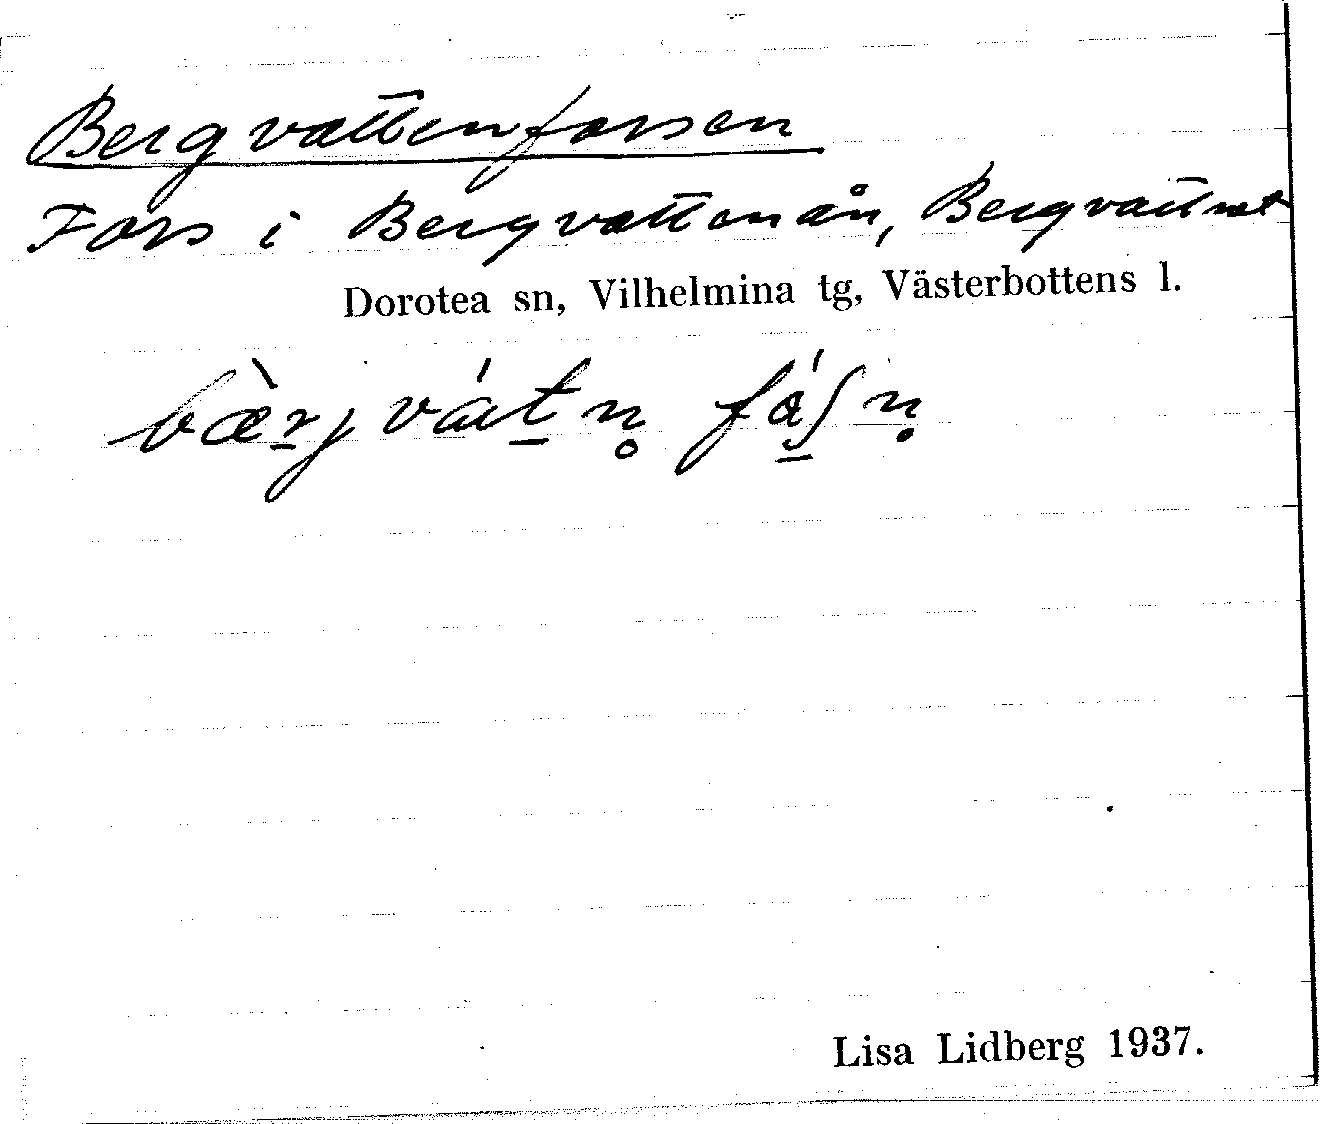 Bergvattenforsen
Fors i Bergvattenån, Bergvattnet
Dorotea sn, Vilhelmina tg, Västerbottens l.
bæ̀r̲jvát̲n̥ fá̲ʃṇ
Lisa Lidberg 1937.